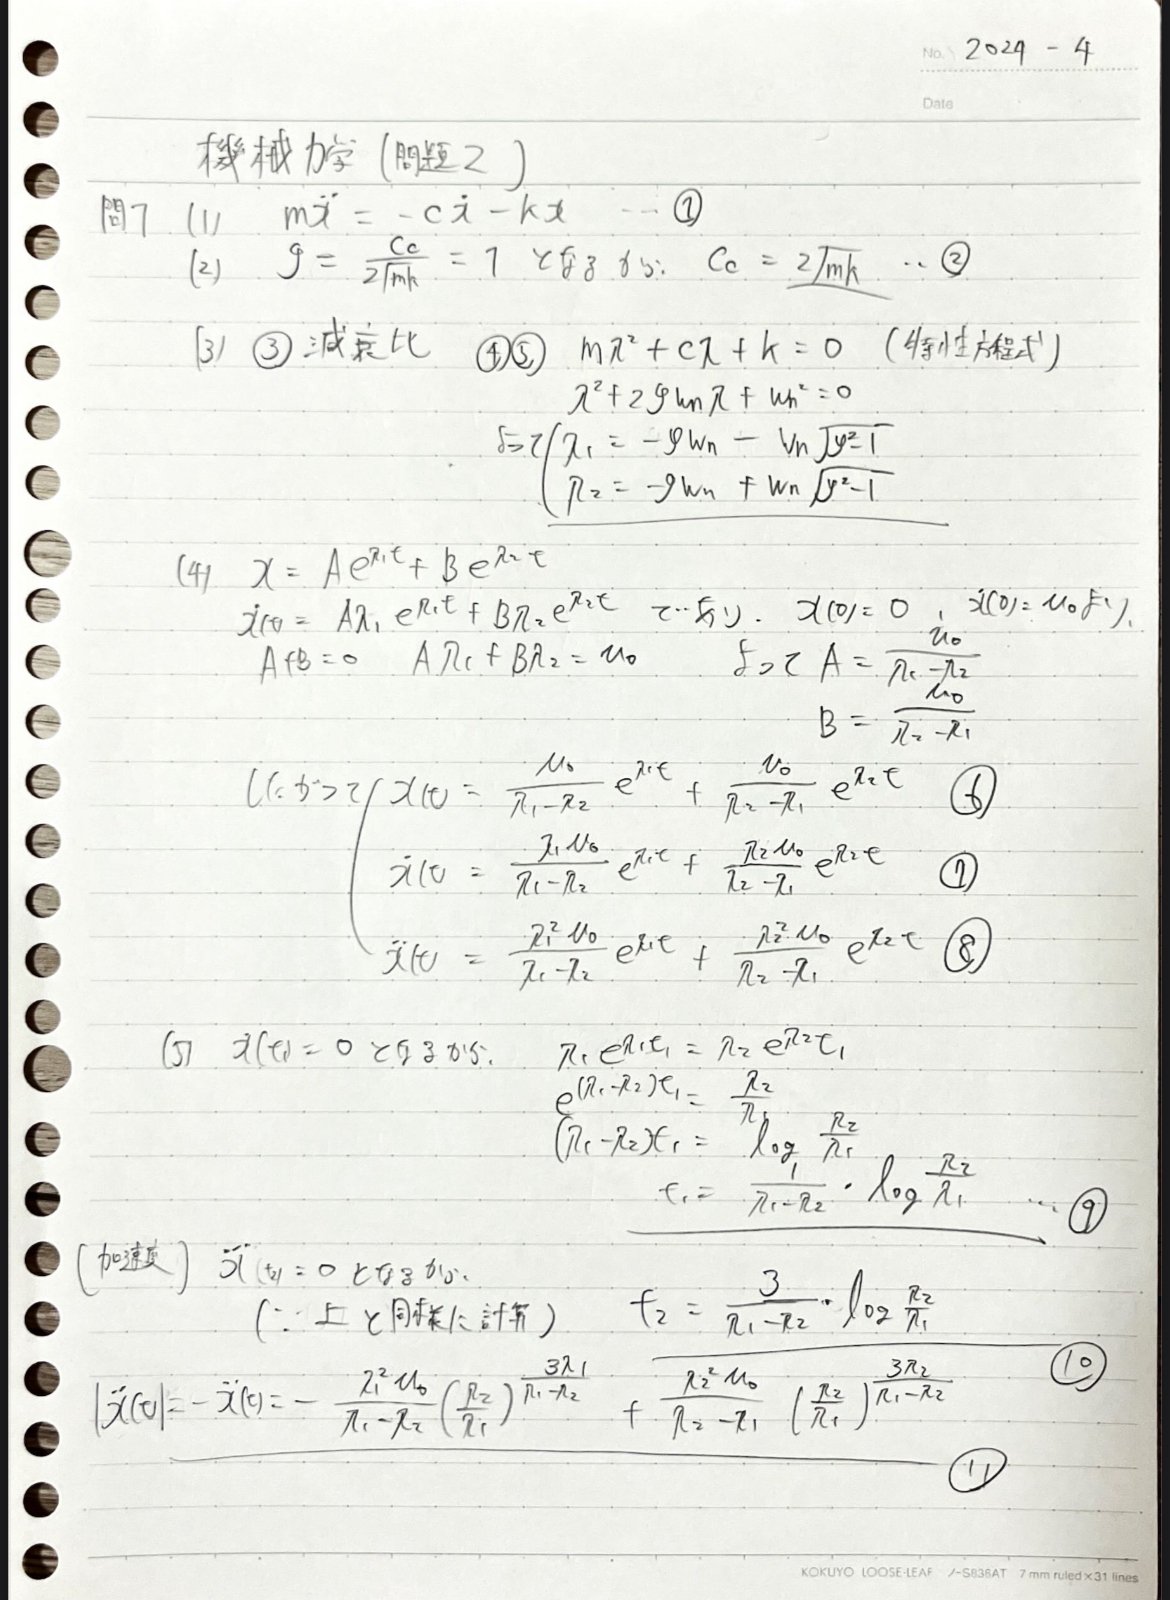 No. 2024 - 4
Date
機械力学 (問題2)
問1 (1) mẍ = -cẋ - kx … ①
(2) ζ = Cc/2√mk = 1 となるから. Cc = 2√mk … ②
(3) ③ 減衰比 ④⑤ mλ² + cλ + k = 0 (特性方程式)
λ² + 2ζωnλ + ωn² = 0
よって λ₁ = -ζωn - ωn√ζ²-1
λ₂ = -ζωn + ωn√ζ²-1
(4) x = Ae^λ₁t + Be^λ₂t
ẋ(t) = Aλ₁e^λ₁t + Bλ₂e^λ₂t であり. x(0) = 0 , ẋ(0) = u₀ より,
A+B = 0 Aλ₁ + Bλ₂ = u₀ よって A = u₀/λ₁-λ₂
B = u₀/λ₂-λ₁
したがって x(t) = u₀/λ₁-λ₂ e^λ₁t + u₀/λ₂-λ₁ e^λ₂t ⑥
ẋ(t) = λ₁u₀/λ₁-λ₂ e^λ₁t + λ₂u₀/λ₂-λ₁ e^λ₂t ⑦
ẍ(t) = λ₁²u₀/λ₁-λ₂ e^λ₁t + λ₂²u₀/λ₂-λ₁ e^λ₂t ⑧
(5) ẋ(t₁) = 0 となるから. λ₁e^λ₁t₁ = λ₂e^λ₂t₁
e^(λ₁-λ₂)t₁ = λ₂/λ₁
(λ₁-λ₂)t₁ = log λ₂/λ₁
t₁ = 1/λ₁-λ₂ · log λ₂/λ₁ … ⑨
(加速度) ẍ(t₂) = 0 となるから.
(∵ 上と同様に計算) t₂ = 3/λ₁-λ₂ · log λ₂/λ₁
⑩
|ẍ(t)| = -ẍ(t) = - λ₁²u₀/λ₁-λ₂ (λ₂/λ₁)^3λ₁/λ₁-λ₂ + λ₂²u₀/λ₂-λ₁ (λ₂/λ₁)^3λ₂/λ₁-λ₂
⑪
KOKUYO LOOSE-LEAF ノ-S836AT 7 mm ruled×31 lines